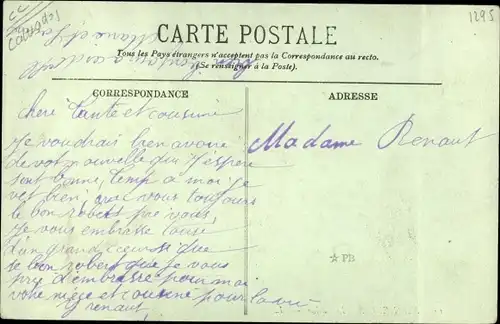 Calvados
1295
CARTE POSTALE
Tous les Pays étrangers n'acceptent pas la Correspondance au recto.
(Se renseigner à la Poste).
CORRESPONDANCE
ADRESSE
chere Tante et cousine
Je voudrais bien avoire
de vot nouvelle que J'espere
sont bonne, temp a moi je
vet bien, avec vous toujours
le bon robert pré vous,
Je vous embrasse
d'un grand cœur si que
se bon robert que je vous
prie d'embrasse pour moi
votre niece et cousine pour la vie
G renaut
Madame Renaut
PB